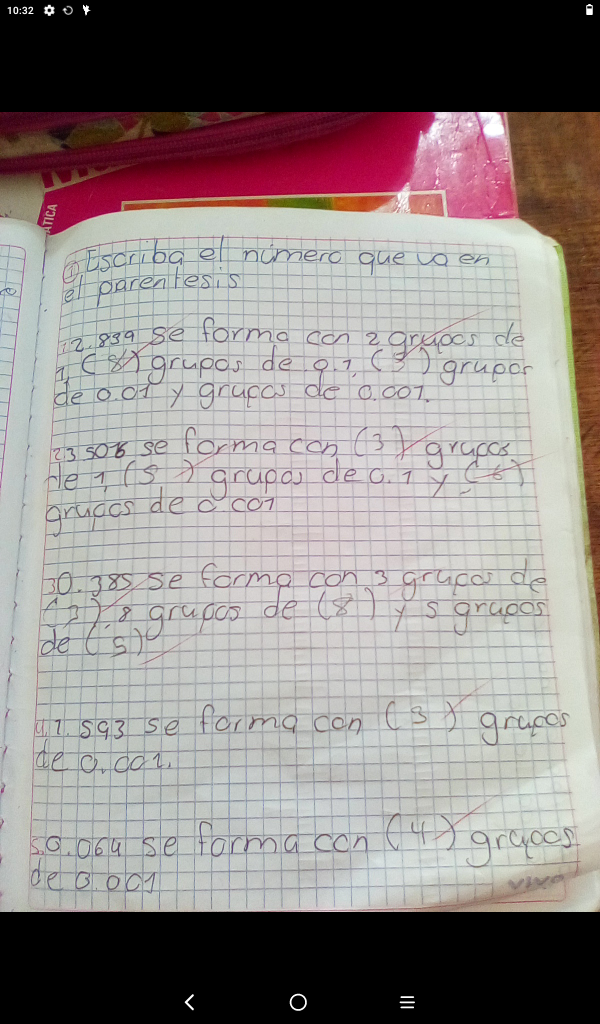 10:32
ATICA
① Escriba el número que va en
el parentesis
12.839 se forma con 2 grupos de
1, (8) grupos de 0.1, (3) grupos
de 0.01 y grupos de 0.001.
23 506 se forma con (3) grupos
de 1, (5) grupos de 0.1 y (6)
grupos de 0 001
30.385 se forma con 3 grupos de
(3), 8 grupos de (8) y 5 grupos
de (5)
4.1.593 se forma con (3) grupos
de 0.001.
5.0.064 se forma con (4) grupos
de 0.001
vivo